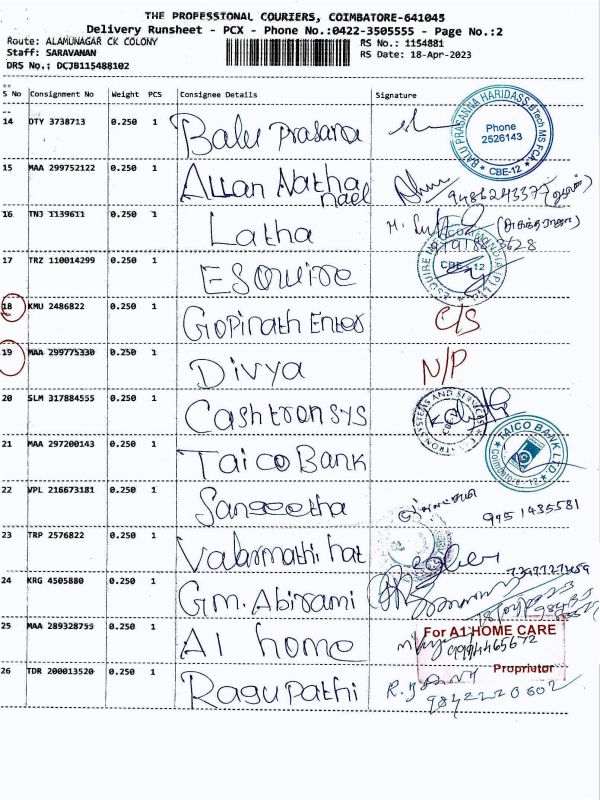 THE PROFESSIONAL COURIERS, COIMBATORE-641045
Delivery Runsheet - PCX - Phone No.:0422-3505555 - Page No.:2
Route: ALAMUNAGAR CK COLONY
Staff: SARAVANAN
DRS No.: DCJB115488102
RS No.: 1154881
RS Date: 18-Apr-2023
S No Consignment No Weight PCS Consignee Details Signature
14 OTY 3738713 0.250 1 Balu Prasana
BALU PRASANNA HARIDASS BTech MS FCA
Phone
2526143
CBE-12
15 MAA 299752122 0.250 1 Allan Nathanael
16 TNJ 1139611 0.250 1 Latha
17 TRZ 110014299 0.250 1 ESQuire
CBE-12
18 KMU 2486822 0.250 1 Gopinath Enter C/S
19 MAA 299775330 0.250 1 Divya N/P
20 SLM 317884555 0.250 1 Cashtron sys
21 MAA 297200143 0.250 1 Taico Bank
TAICO BANK LTD.
Coimbatore-12
22 VPL 216673181 0.250 1 Sangeetha 9951435581
23 TRP 2576822 0.250 1 Valarmathi hat
24 KRG 4505880 0.250 1 Gm. Abirami
25 MAA 289328755 0.250 1 A1 home
For A1 HOME CARE
Proprietor
26 TDR 200013520 0.250 1 Ragupathi 9842220602